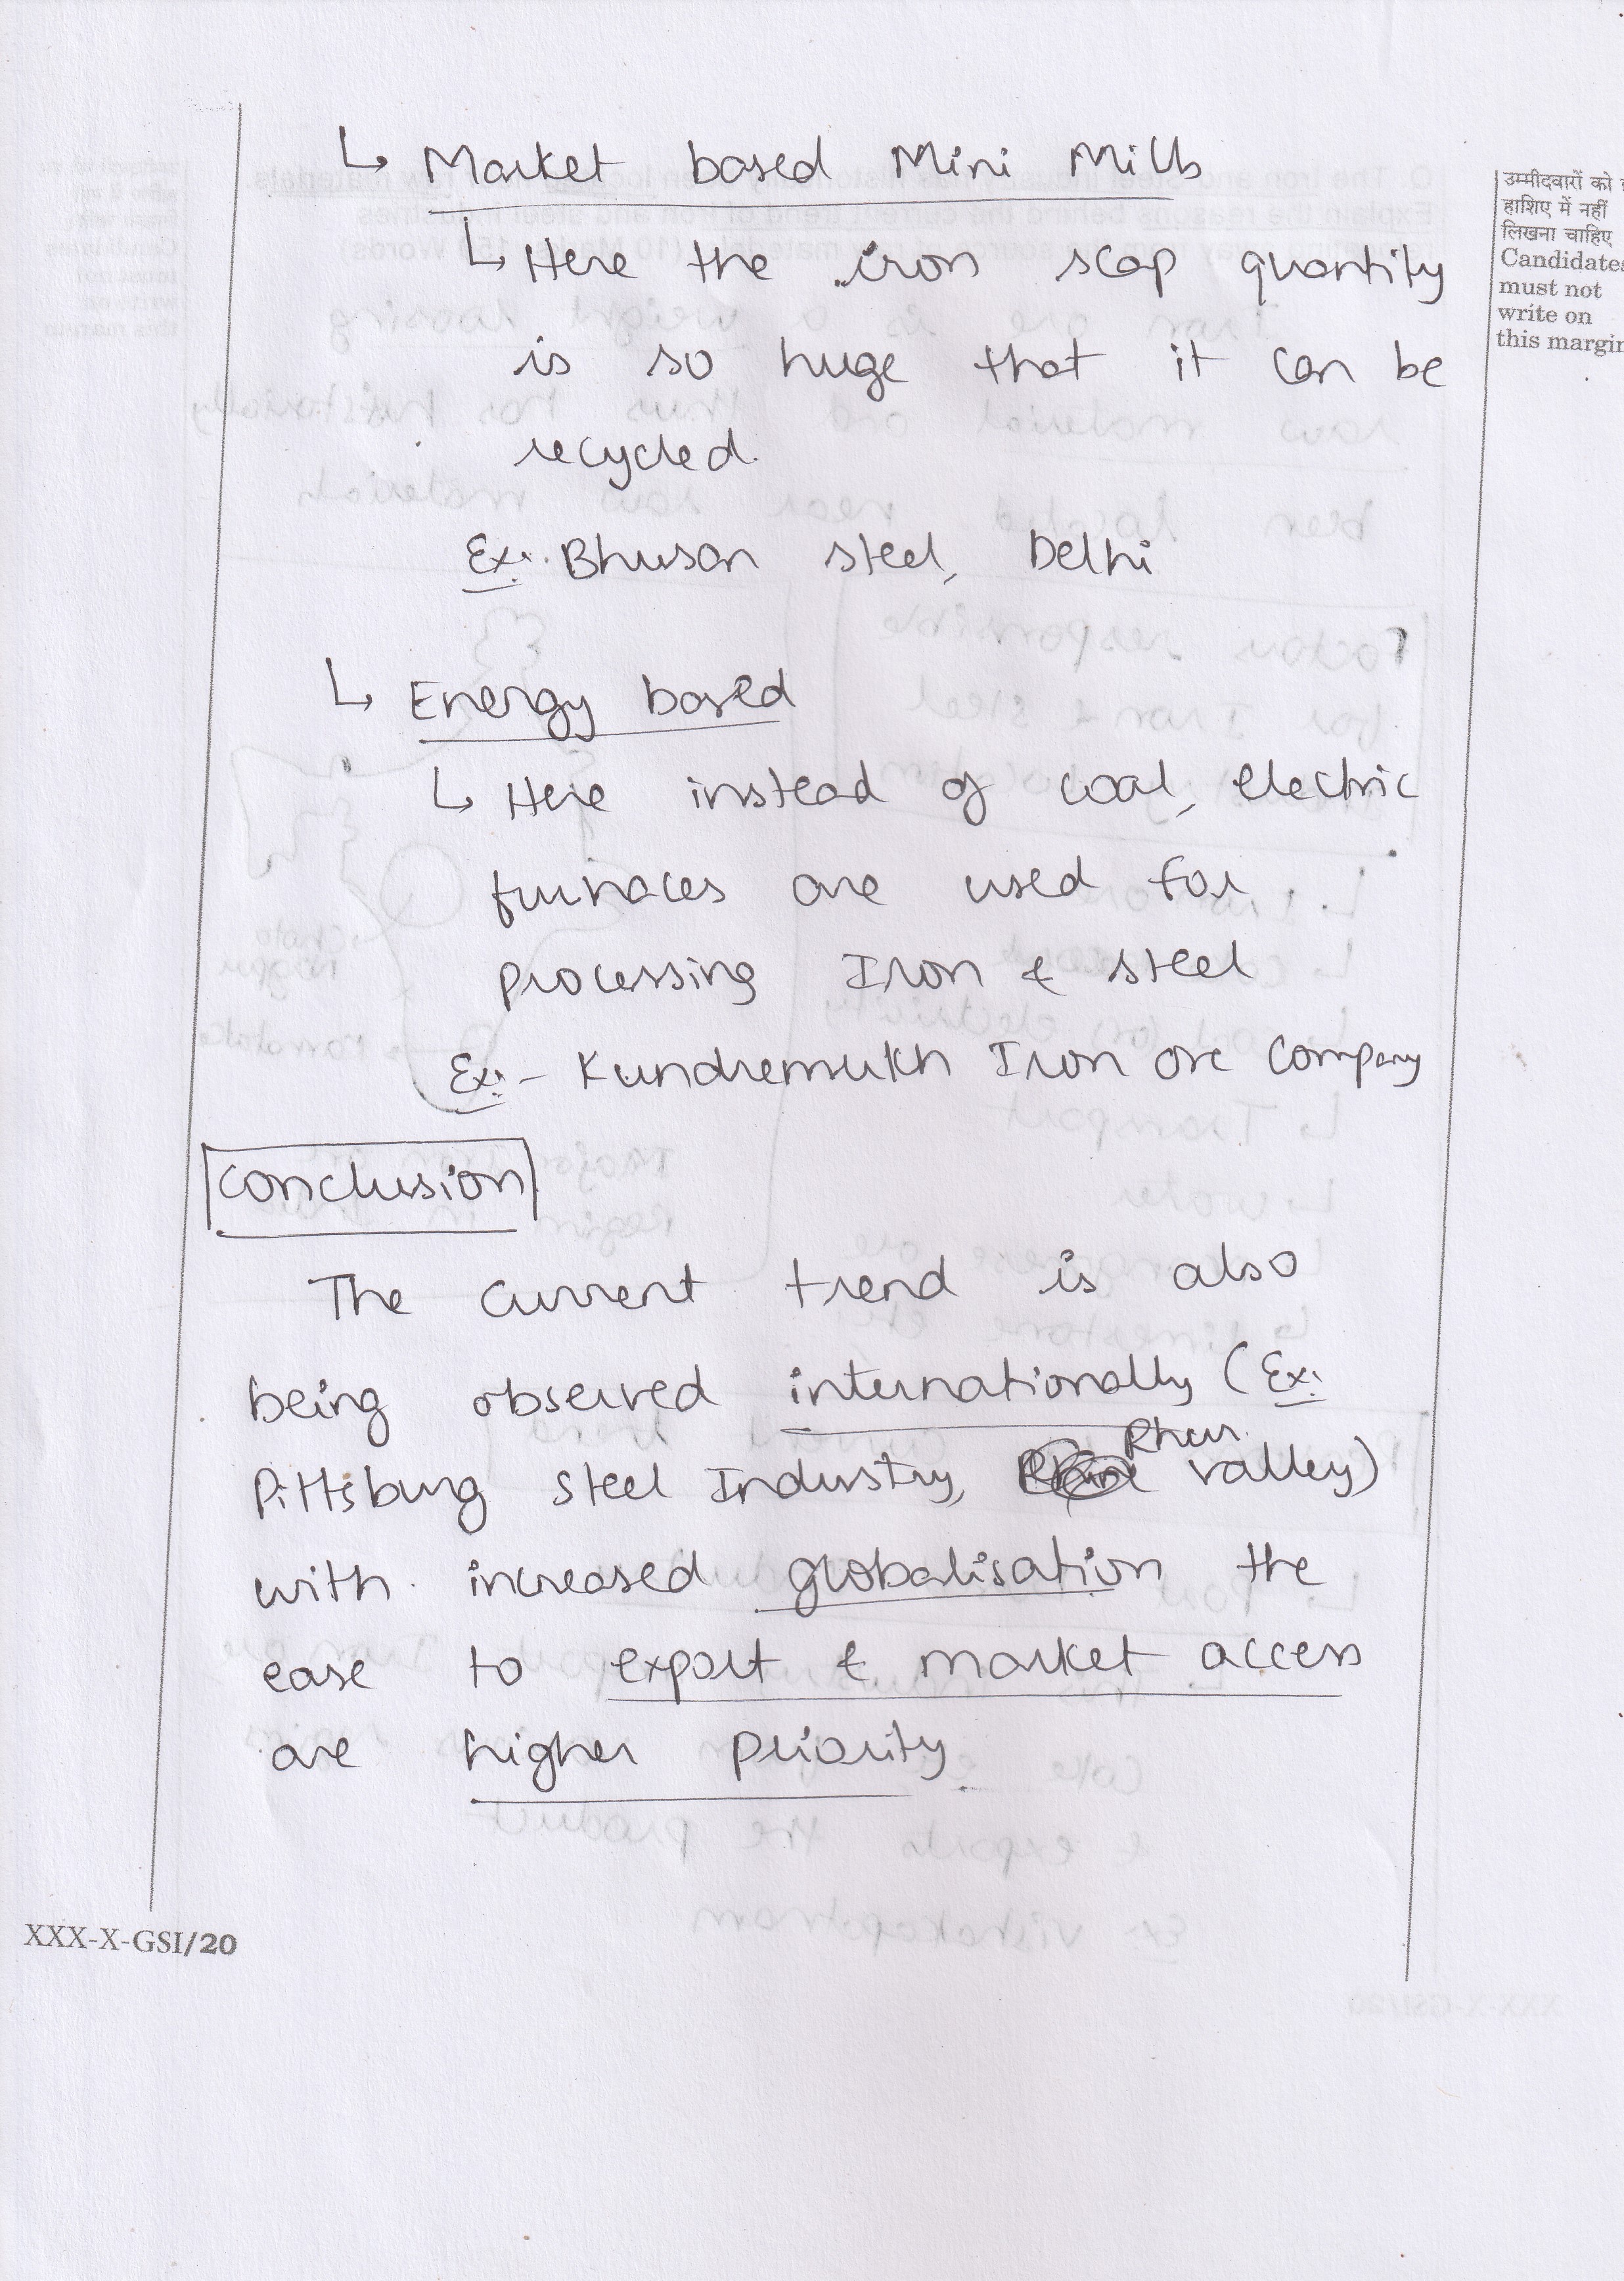 ↳ Market based Mini Mills
↳ Here the iron scap quantity
is so huge that it can be
recycled.
Ex:- Bhusan steel, Delhi
↳ Energy based
↳ Here instead of coal, electric
furnaces are used for
processing Iron & steel
Ex:- Kundremukh Iron ore Company
Conclusion
The current trend is also
being observed internationally (Ex:
Pittsburg steel Industry, Rhur valley)
with increased globalisation the
ease to export & market access
are higher priority.
उम्मीदवारों को
हाशिए में नहीं
लिखना चाहिए
Candidates
must not
write on
this margin
XXX-X-GSI/20